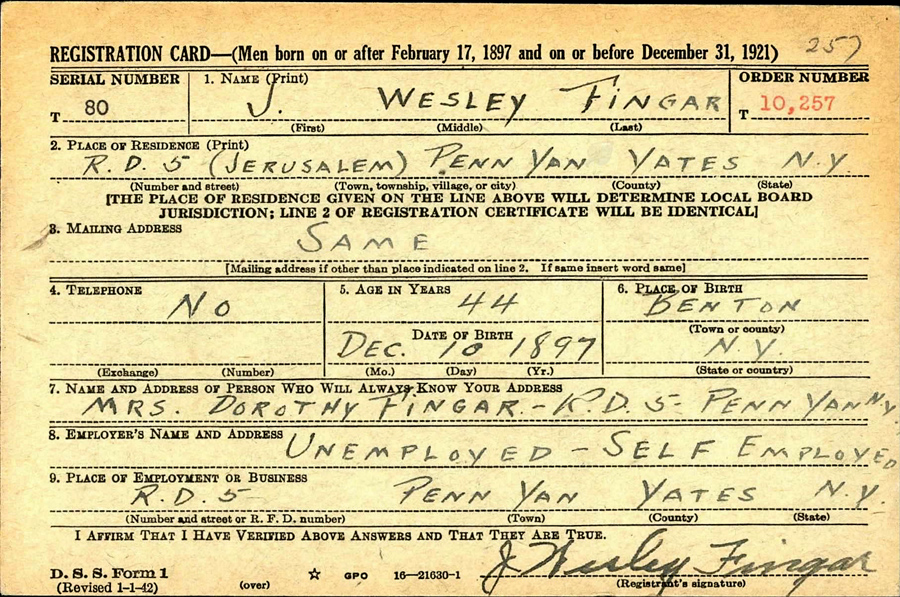 257
REGISTRATION CARD—(Men born on or after February 17, 1897 and on or before December 31, 1921)
SERIAL NUMBER 1. NAME (Print) ORDER NUMBER
T 80 J. WESLEY FINGAR T 10,257
(First) (Middle) (Last)
2. PLACE OF RESIDENCE (Print)
R.D. 5 (JERUSALEM) PENN YAN YATES N.Y.
(Number and street) (Town, township, village, or city) (County) (State)
[THE PLACE OF RESIDENCE GIVEN ON THE LINE ABOVE WILL DETERMINE LOCAL BOARD
JURISDICTION; LINE 2 OF REGISTRATION CERTIFICATE WILL BE IDENTICAL]
3. MAILING ADDRESS
SAME
[Mailing address if other than place indicated on line 2. If same insert word same]
4. TELEPHONE 5. AGE IN YEARS 6. PLACE OF BIRTH
NO 44 BENTON
DATE OF BIRTH (Town or county)
DEC. 10 1897 N.Y.
(Exchange) (Number) (Mo.) (Day) (Yr.) (State or country)
7. NAME AND ADDRESS OF PERSON WHO WILL ALWAYS KNOW YOUR ADDRESS
MRS. DOROTHY FINGAR - R.D. 5 - PENN YAN N.Y.
8. EMPLOYER'S NAME AND ADDRESS
UNEMPLOYED - SELF EMPLOYED
9. PLACE OF EMPLOYMENT OR BUSINESS
R.D. 5 PENN YAN YATES N.Y.
(Number and street or R. F. D. number) (Town) (County) (State)
I AFFIRM THAT I HAVE VERIFIED ABOVE ANSWERS AND THAT THEY ARE TRUE.
J Wesley Fingar
D. S. S. Form 1 ☆ GPO 16—21630-1
(Revised 1-1-42) (over) (Registrant's signature)